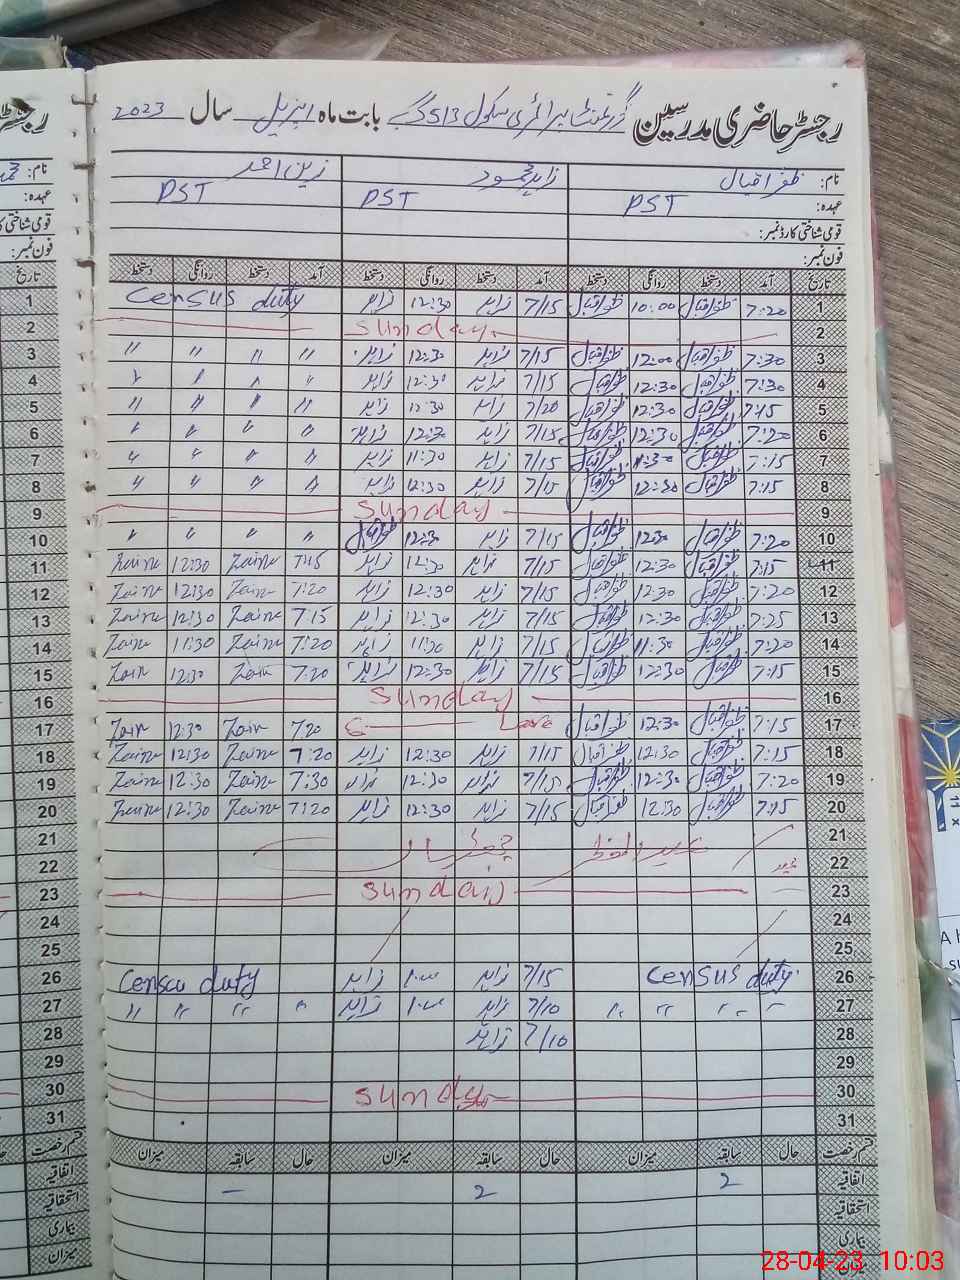 رجسٹر حاضری مدرسین گورنمنٹ پرائمری سکول 513 گ ب بابت ماہ اپریل سال 2023
نام: ظفر اقبال زاہد محمود زین احمد
عہدہ: PST PST PST
قومی شناختی کارڈ نمبر:
فون نمبر:
تاریخ آمد دستخط روانگی دستخط آمد دستخط روانگی دستخط آمد دستخط روانگی دستخط
1 7:20 ظفر اقبال 10:00 ظفر اقبال 7/15 زاہد 12:30 زاہد Census duty
2 Sunday
3 7:30 ظفر اقبال 12:00 ظفر اقبال 7/15 زاہد 12:30 زاہد " " " "
4 7:30 ظفر اقبال 12:30 ظفر اقبال 7/15 زاہد 12:30 زاہد " " " "
5 7:15 ظفر اقبال 12:30 ظفر اقبال 7/20 زاہد 12:30 زاہد " " " "
6 7:20 ظفر اقبال 12:30 ظفر اقبال 7/15 زاہد 12:30 زاہد " " " "
7 7:15 ظفر اقبال 11:30 ظفر اقبال 7/15 زاہد 11:30 زاہد " " " "
8 7:15 ظفر اقبال 12:30 ظفر اقبال 7/15 زاہد 12:30 زاہد " " " "
9 Sunday
10 7:20 ظفر اقبال 12:30 ظفر اقبال 7/15 زاہد 12:30 ظفر اقبال " " " "
11 7:15 ظفر اقبال 12:30 ظفر اقبال 7/15 زاہد 12:30 زاہد 7:15 Zain 12:30 Zain
12 7:20 ظفر اقبال 12:30 ظفر اقبال 7/15 زاہد 12:30 زاہد 7:20 Zain 12:30 Zain
13 7:25 ظفر اقبال 12:30 ظفر اقبال 7/15 زاہد 12:30 زاہد 7:15 Zain 12:30 Zain
14 7:20 ظفر اقبال 11:30 ظفر اقبال 7/15 زاہد 11:30 زاہد 7:20 Zain 11:30 Zain
15 7:15 ظفر اقبال 12:30 ظفر اقبال 7/15 زاہد 12:30 زاہد 7:20 Zain 12:30 Zain
16 Sunday
17 7:15 ظفر اقبال 12:30 ظفر اقبال 7:20 Zain 12:30 Zain
18 7:15 ظفر اقبال 12:30 ظفر اقبال 7/15 زاہد 12:30 زاہد 7:20 Zain 12:30 Zain
19 7:20 ظفر اقبال 12:30 ظفر اقبال 7/15 زاہد 12:30 زاہد 7:30 Zain 12:30 Zain
20 7:15 ظفر اقبال 12:30 ظفر اقبال 7/15 زاہد 12:30 زاہد 7:20 Zain 12:30 Zain
21 عید الفطر چھٹیاں
22
23 Sunday
24
25
26 Census duty 7/15 زاہد زاہد Census duty
27 " " " " 7/10 زاہد زاہد " " " "
28 7/10 زاہد
29
30 Sunday
31
قسم رخصت حال سابقہ میزان حال سابقہ میزان حال سابقہ میزان
اتفاقیہ 2 2 –
استحقاقیہ
بیماری
میزان
28-04-23 10:03